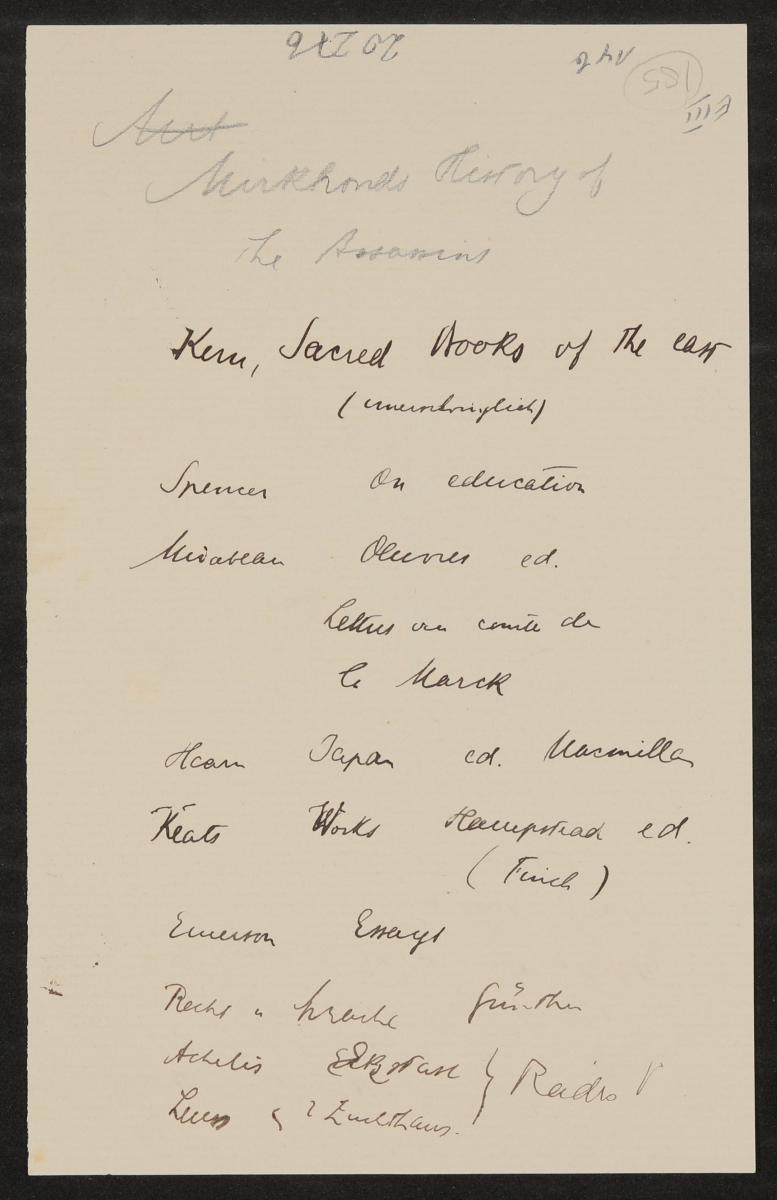 185
Mirkhonds History of
the Assassins
Kern, Sacred Books of the east
(unerschwinglich)
Spencer On education
Mirabeau Oeuvres ed.
Lettres au comte de
la Marck
Hearn Japan ed. Macmillan
Keats Works Hampstead ed.
(Finch)
Emerson Essays
Recht u Sprache Günther
Achelis Ekstase } Radio
Leuss Zuchthaus.